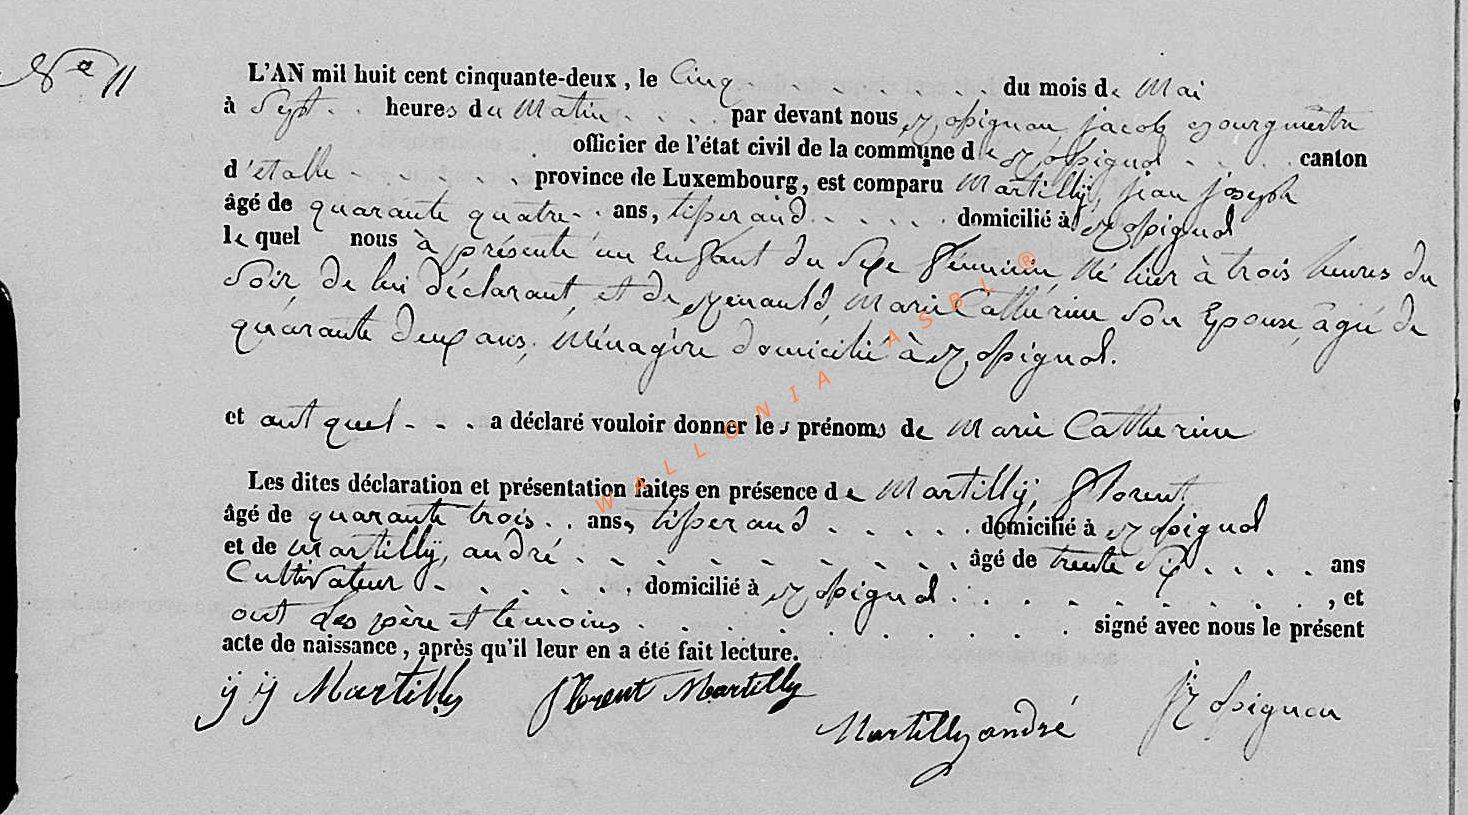 Nº 11
L'AN mil huit cent cinquante-deux, le Cinq . . . . . . . du mois de Mai
à Sept . . heures du Matin . . . . par devant nous Rossignon, jacob Bourgmestre
. officier de l'état civil de la commune de Rossignol . . . . canton
d'étalle . . . . . . province de Luxembourg, est comparu Martilly, jean joseph
âgé de quarante quatre . . ans, tisserand . . . . . domicilié à Rossignol
lequel nous à présenté un enfant du Sexe féminin, Né hier à trois heures du
Soir, de lui déclarant, et de Renauld, Marie Catherine Son Epouse, âgée de
quarante deux ans, Ménagère domicilié à Rossignol.
et au quel . . . a déclaré vouloir donner les prénoms de Marie Catherine
Les dites déclaration et présentation faites en présence de Martilly, florent
âgé de quarante trois . . ans, tisserand . . . . . domicilié à Rossignol
et de Martilly, andré . . . . . . . . . . âgé de trente Six . . . . ans
Cultivateur . . . . . . domicilié à Rossignol . . . . . . . . . , et
ont les père et temoins . . . . . . . . . . . signé avec nous le présent
acte de naissance, après qu'il leur en a été fait lecture.
jj Martilly florent Martilly
Martilly andré j Rossignon
WALLONIA ASBL ®